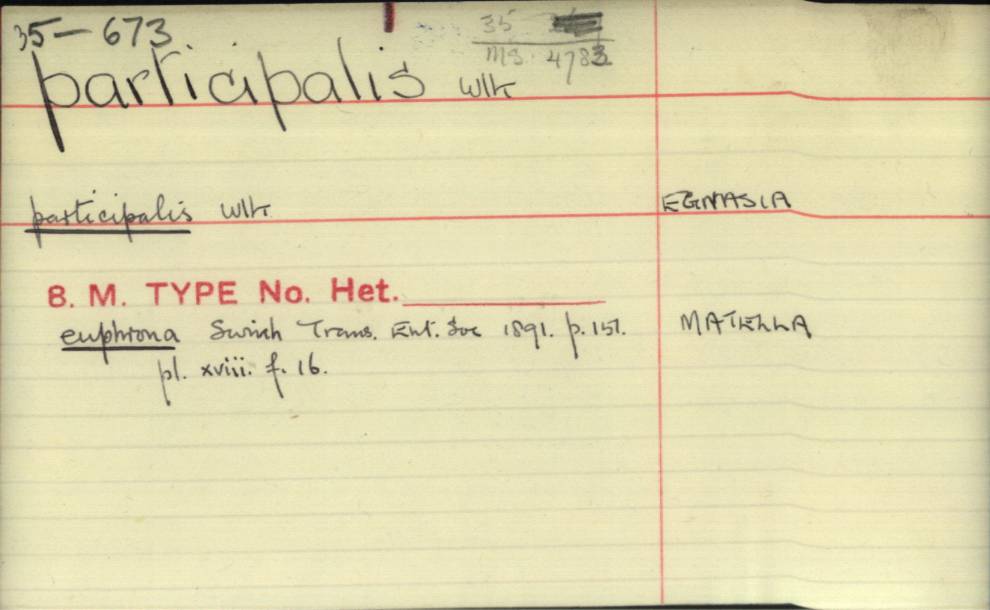 35-673
35
MS. 4783
participalis wlk
participalis wlk. EGNASIA
B. M. TYPE No. Het.
euphrona Swinh Trans. Ent. Soc 1891. p.151. MATELLA
pl. xviii. f. 16.